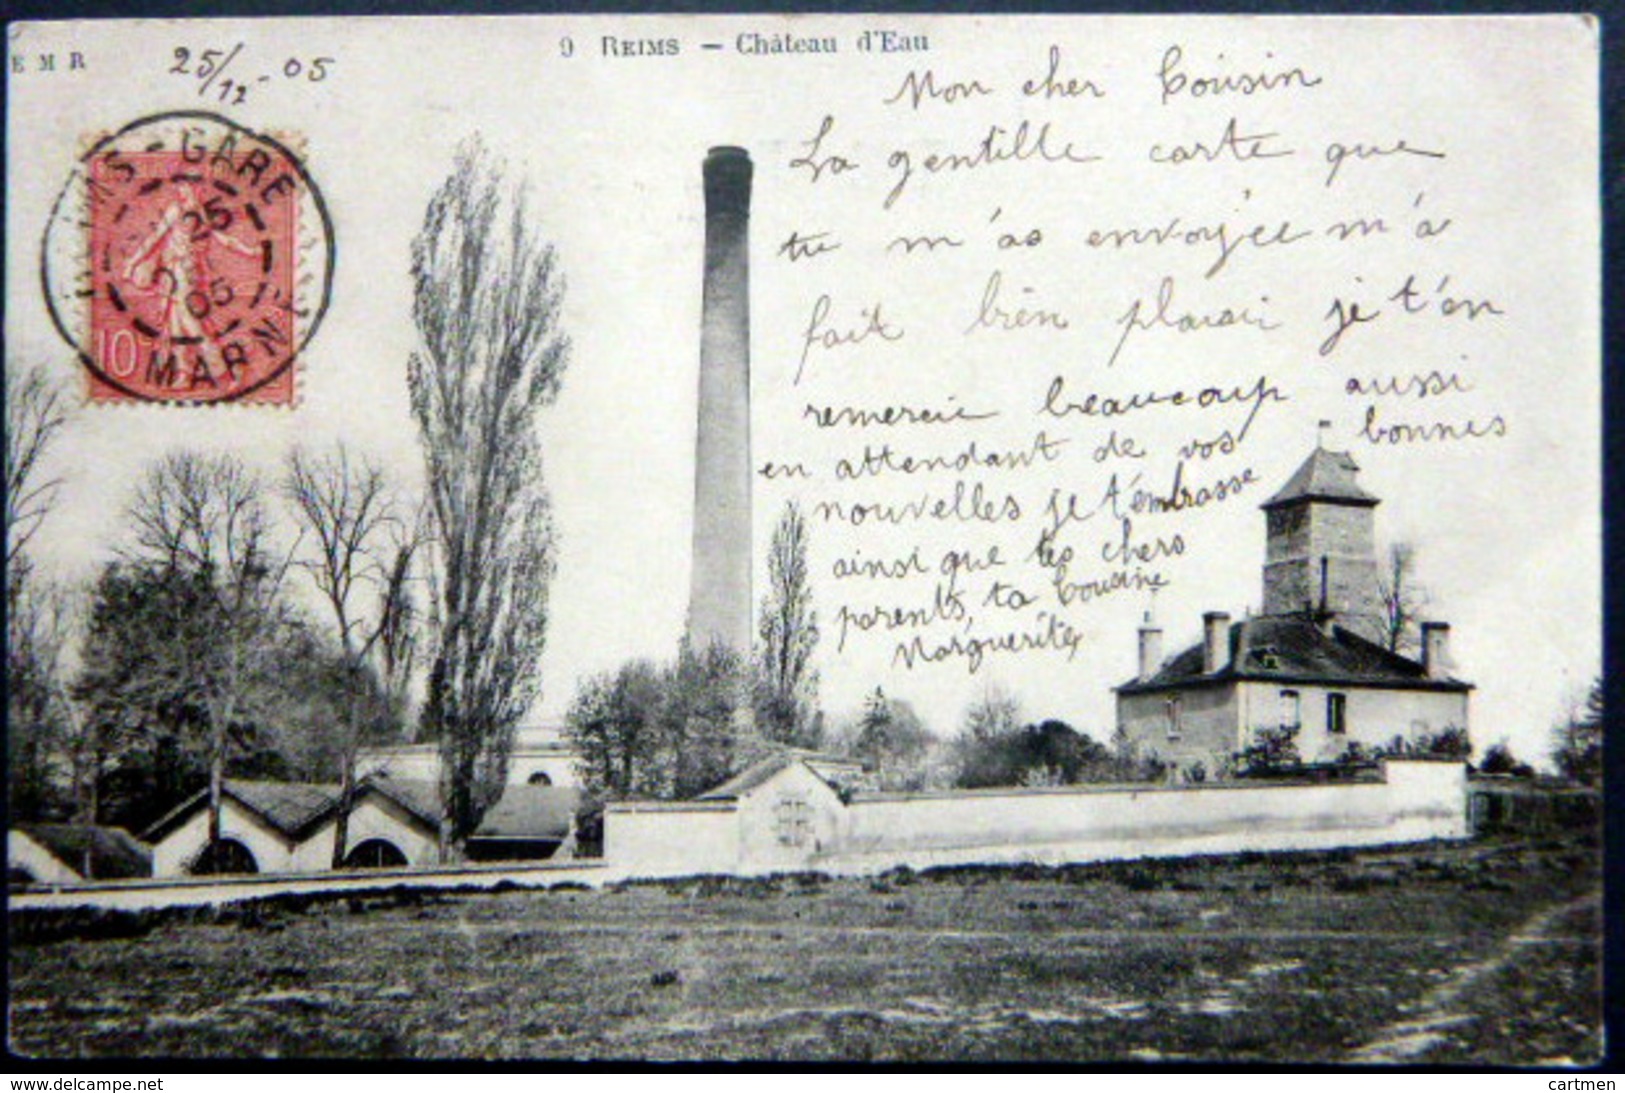 E M R
25/12-05
9 REIMS — Château d'Eau
REIMS - GARE
25
05
MARNE
10
Mon cher Cousin
La gentille carte que
tu m'as envoyée m'a
fait bien plaisir je t'en
remercie beaucoup aussi
en attendant de vos bonnes
nouvelles je t'embrasse
ainsi que tes chers
parents, ta Cousine
Marguerite
delcampe.net
cartmen